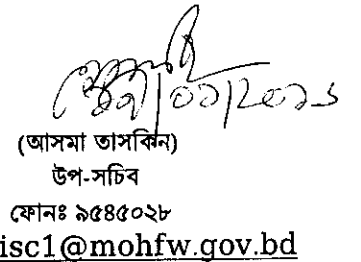 (আসমা তাসকিন)
উপ-সচিব
ফোনঃ ৯৫৪৫০২৮
isc1@mohfw.gov.bd